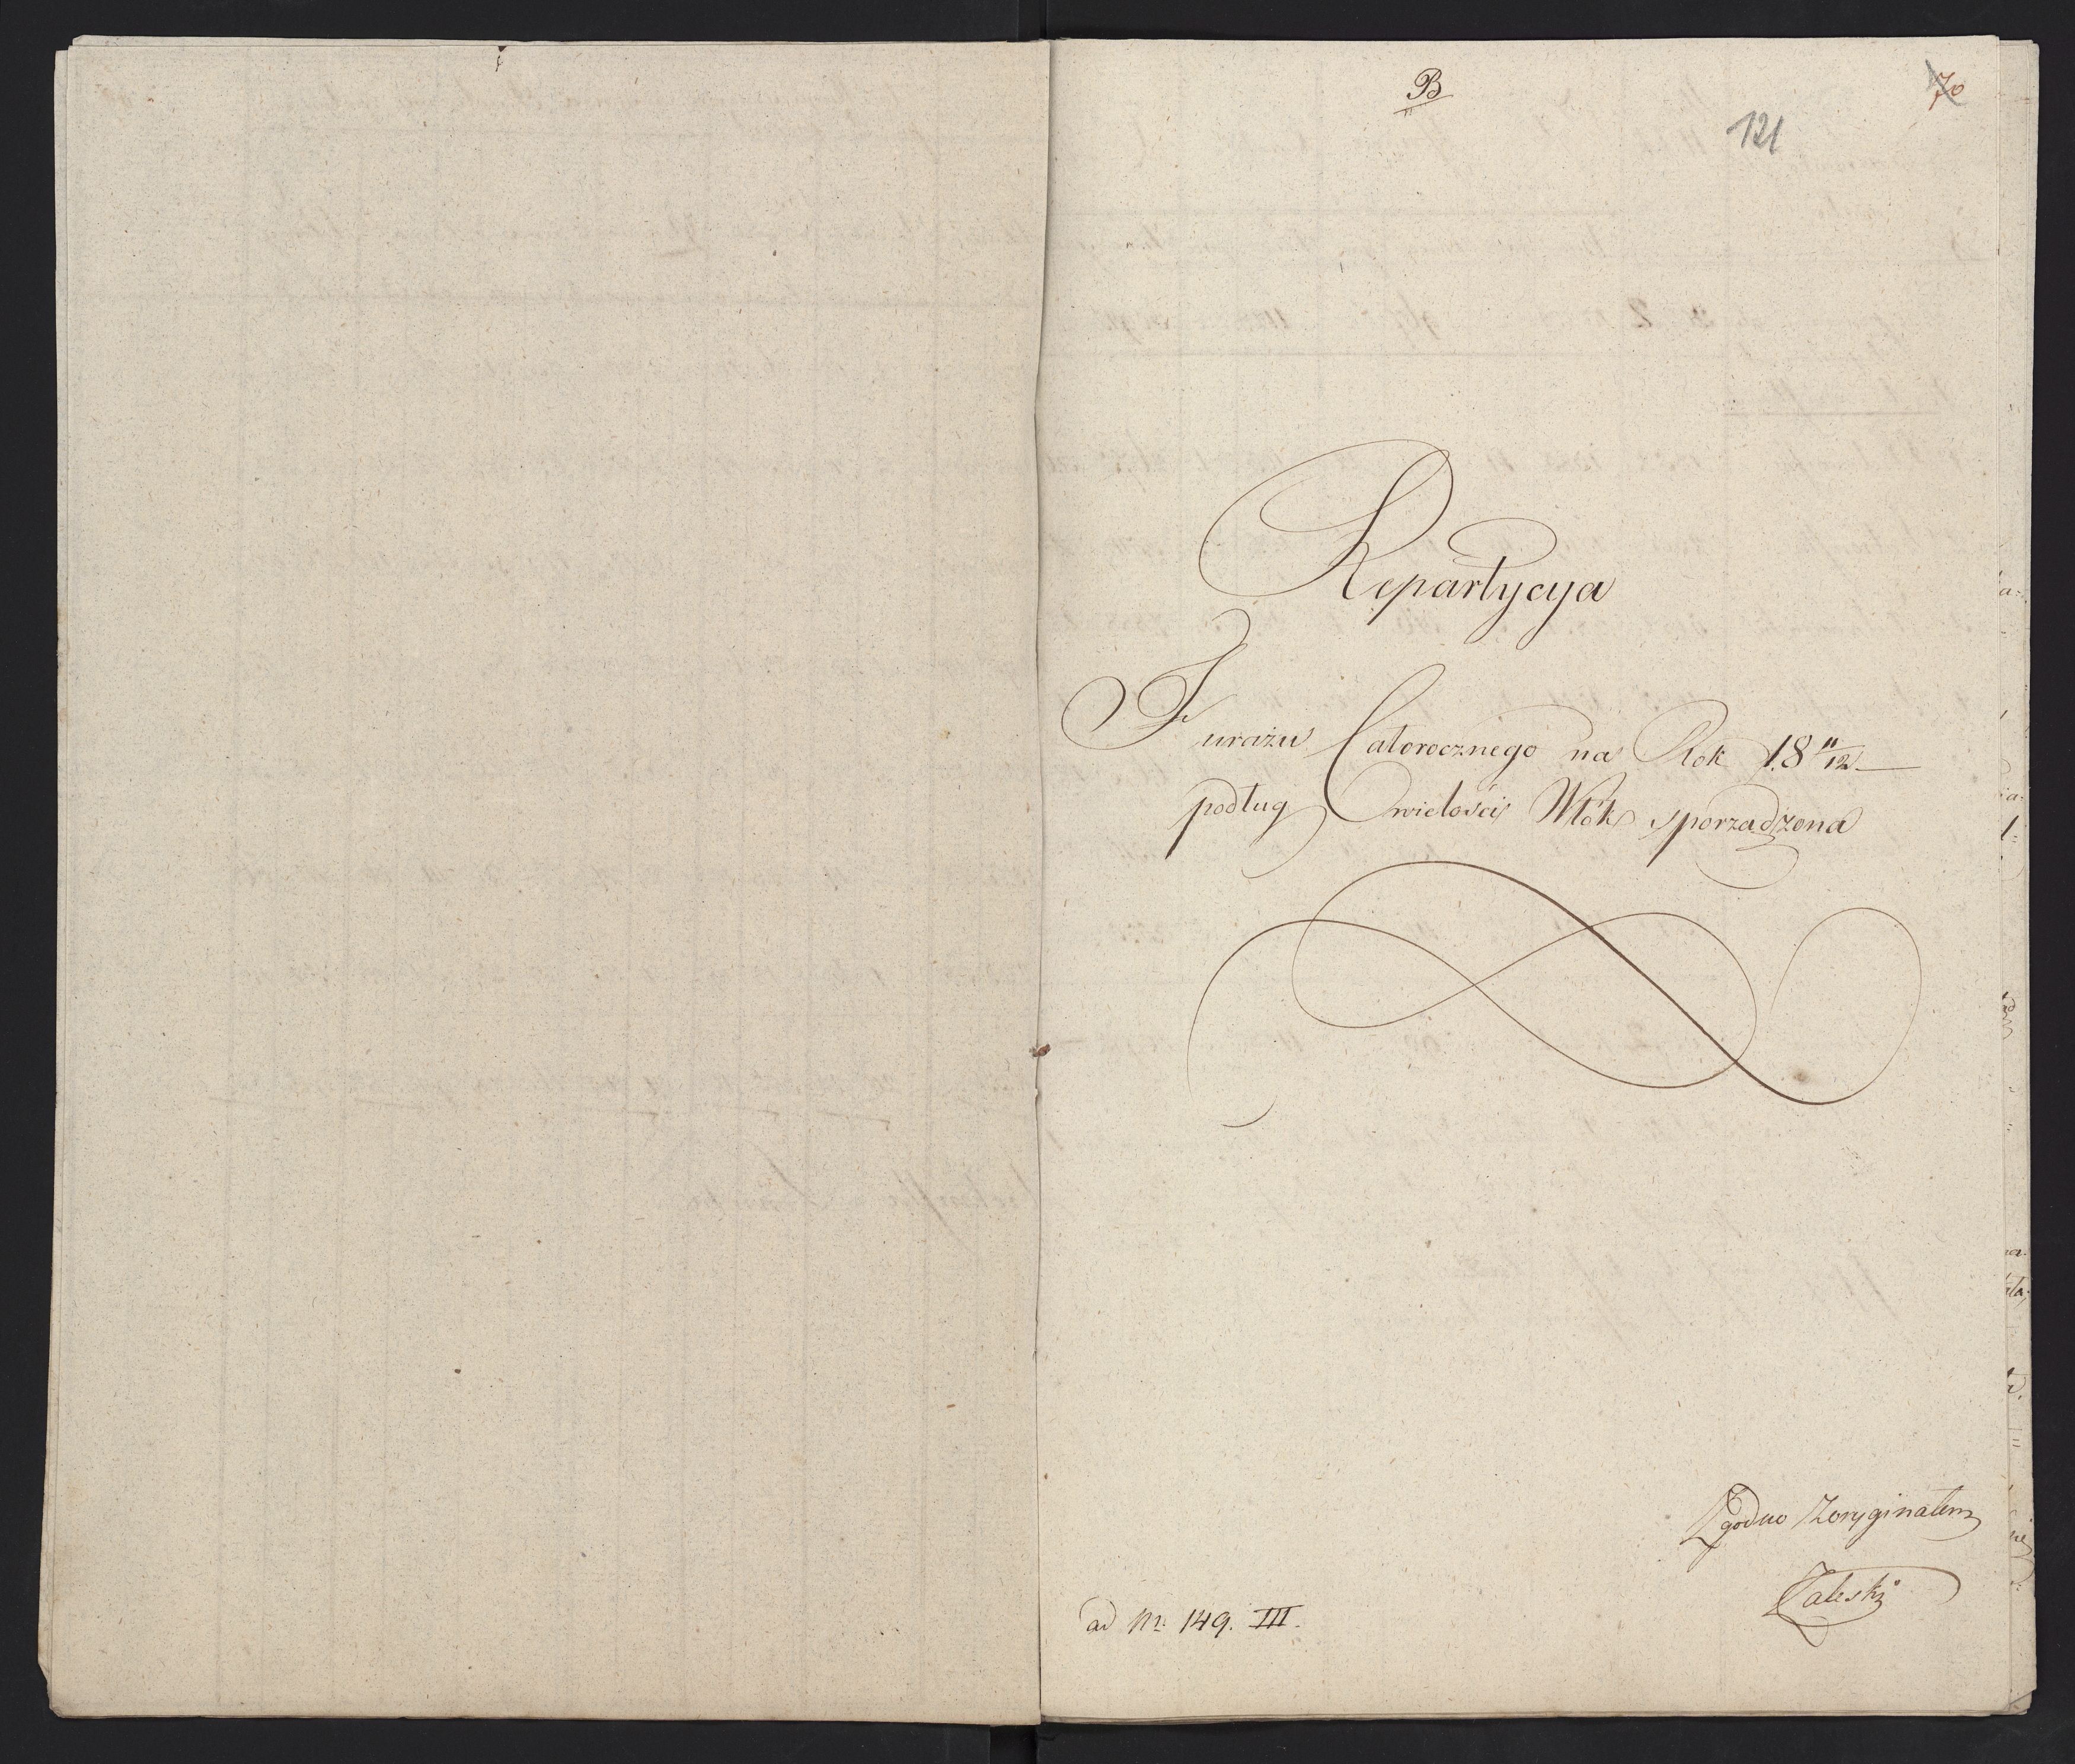 B
70
121
Repartycya
Furażu Całorocznego na Rok 18 11/12
podług wielości Włók sporządzona
Zgodno Zoryginałem
Zaleski
ad Nr. 149. III.